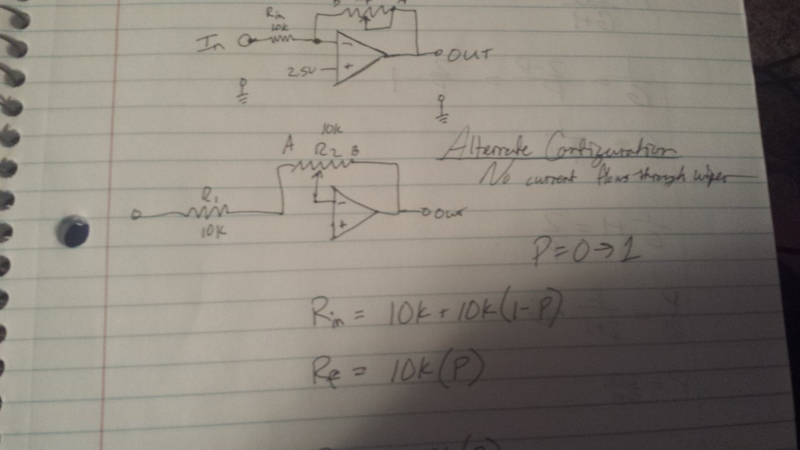 Rin
10k
In
-
+
2.5V
OUT
10k
A R2 B
Alternate Configuration
No current flows through wiper
R1
10K
-
+
OUT
P=0→1
Rin = 10k + 10k(1-P)
Rf = 10k(P)